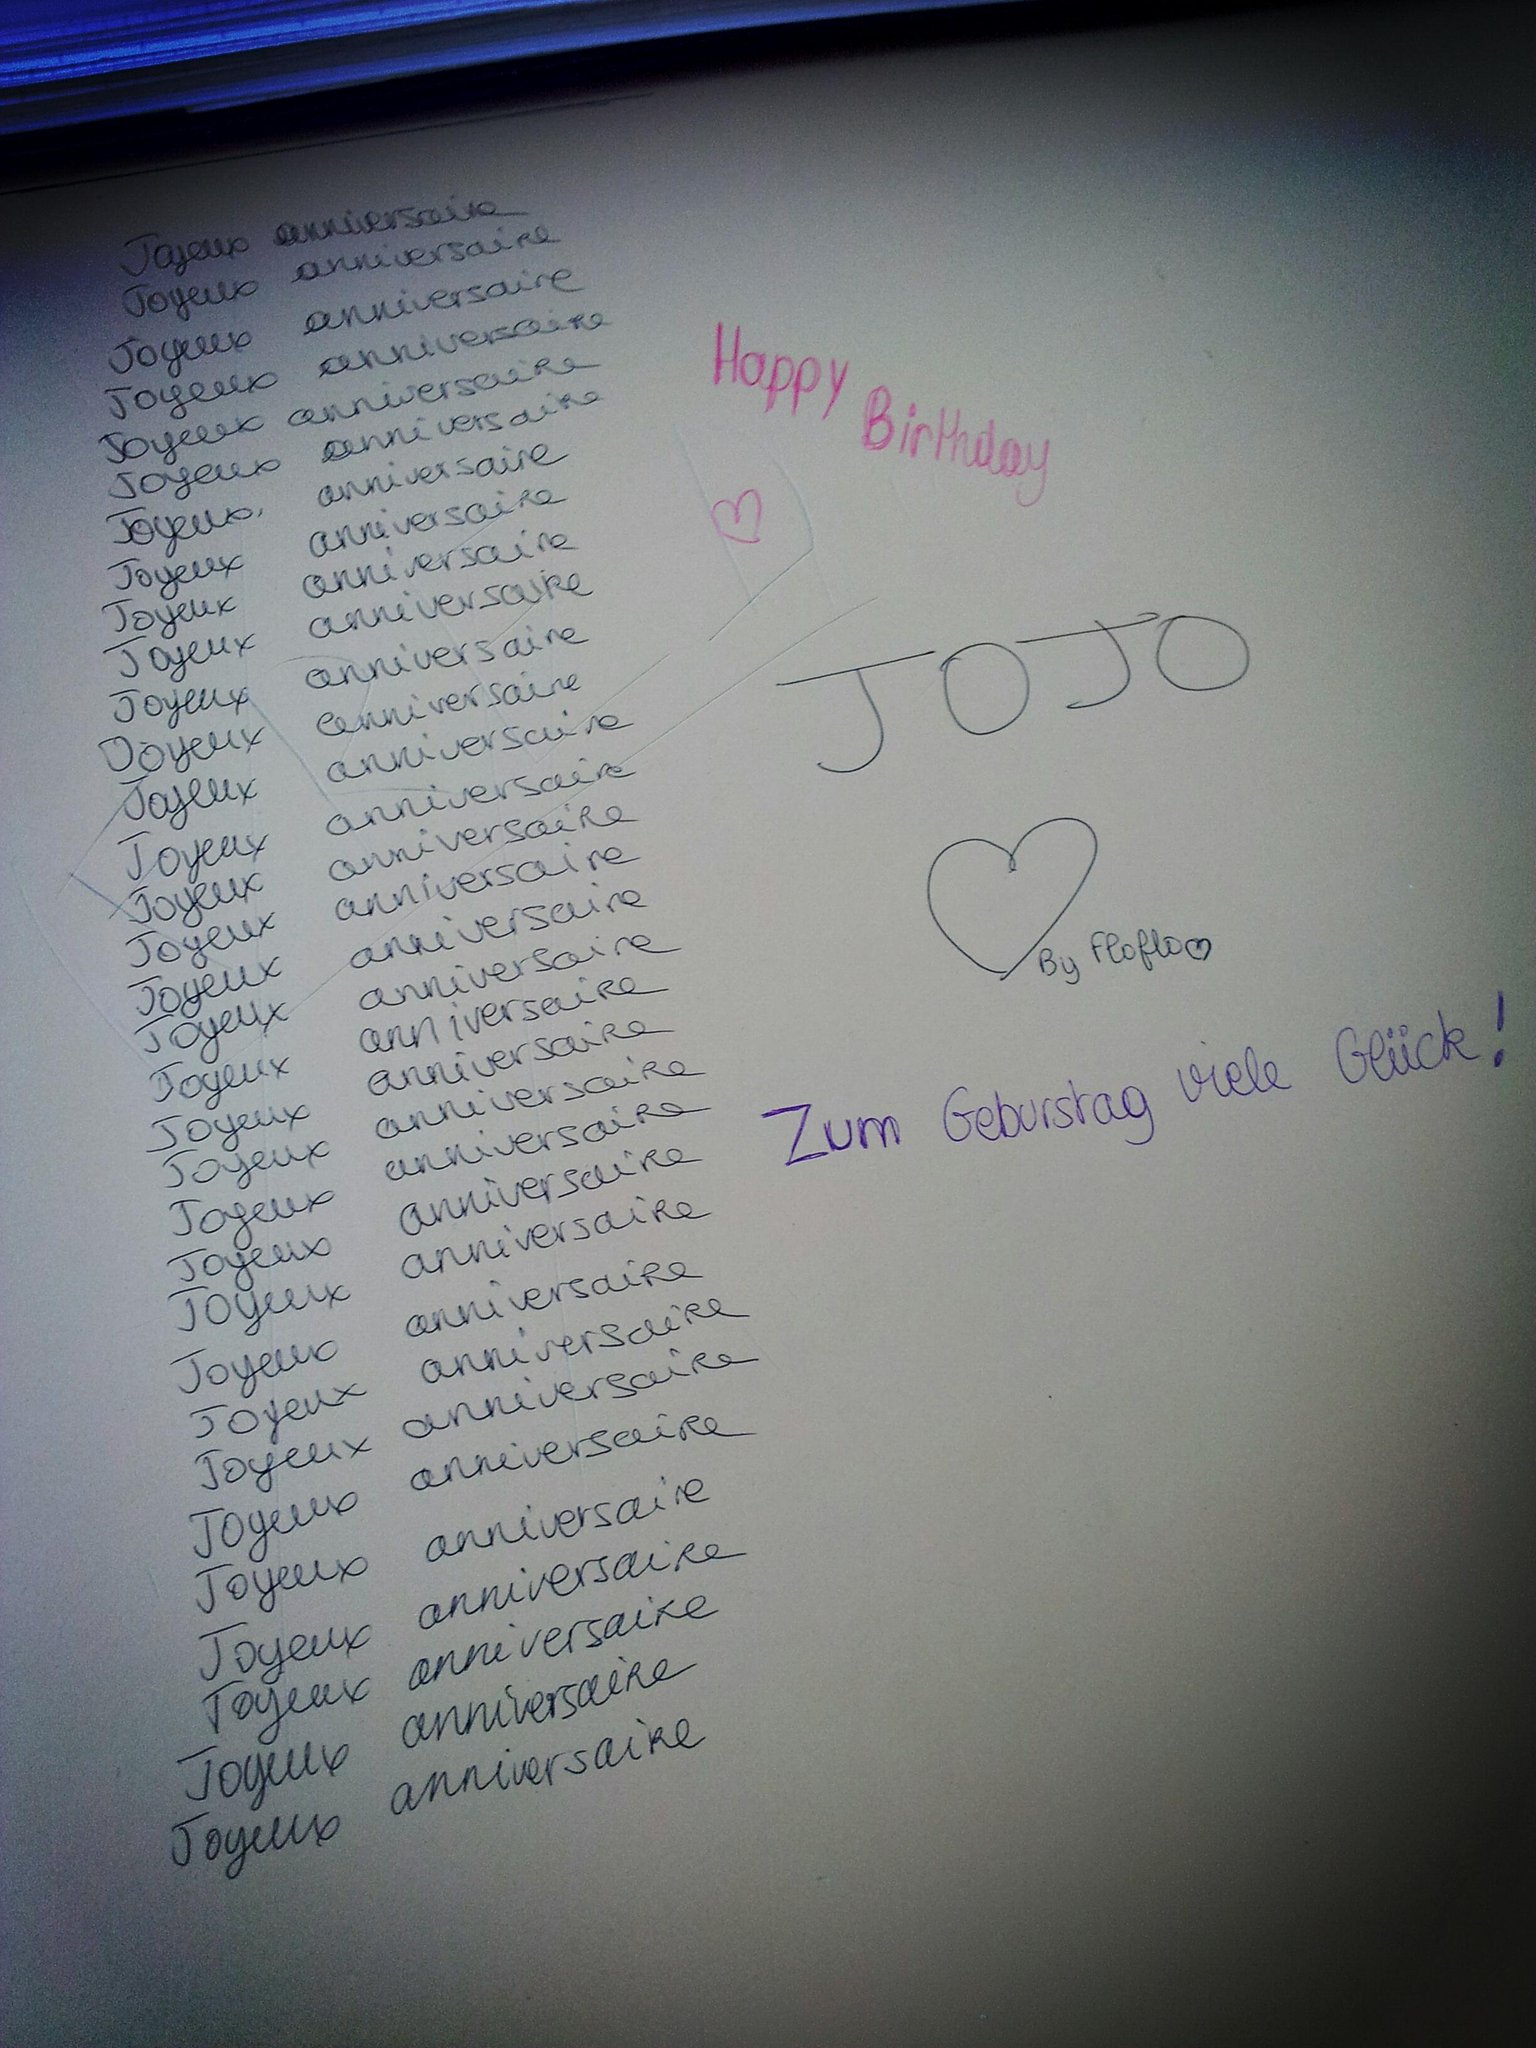 Joyeux anniversaire
Joyeux anniversaire
Joyeux anniversaire
Joyeux anniversaire
Joyeux anniversaire
Joyeux anniversaire
Joyeux anniversaire
Joyeux anniversaire
Joyeux anniversaire
Joyeux anniversaire
Joyeux anniversaire
Joyeux anniversaire
Joyeux anniversaire
Joyeux anniversaire
Joyeux anniversaire
Joyeux anniversaire
Joyeux anniversaire
Joyeux anniversaire
Joyeux anniversaire
Joyeux anniversaire
Joyeux anniversaire
Joyeux anniversaire
Joyeux anniversaire
Joyeux anniversaire
Joyeux anniversaire
Joyeux anniversaire
Joyeux anniversaire
Joyeux anniversaire
Joyeux anniversaire
Joyeux anniversaire
Joyeux anniversaire
Joyeux anniversaire
Joyeux anniversaire
Happy Birthday
JOJO
By Floflo
Zum Geburstag viele Glück!